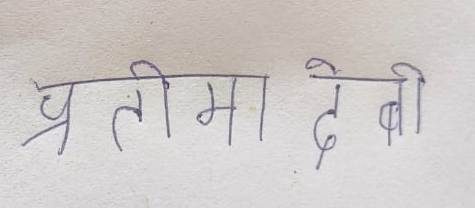 प्रतीमा देबी